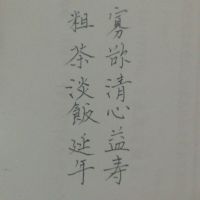 寡欲清心益寿
粗茶淡飯延年